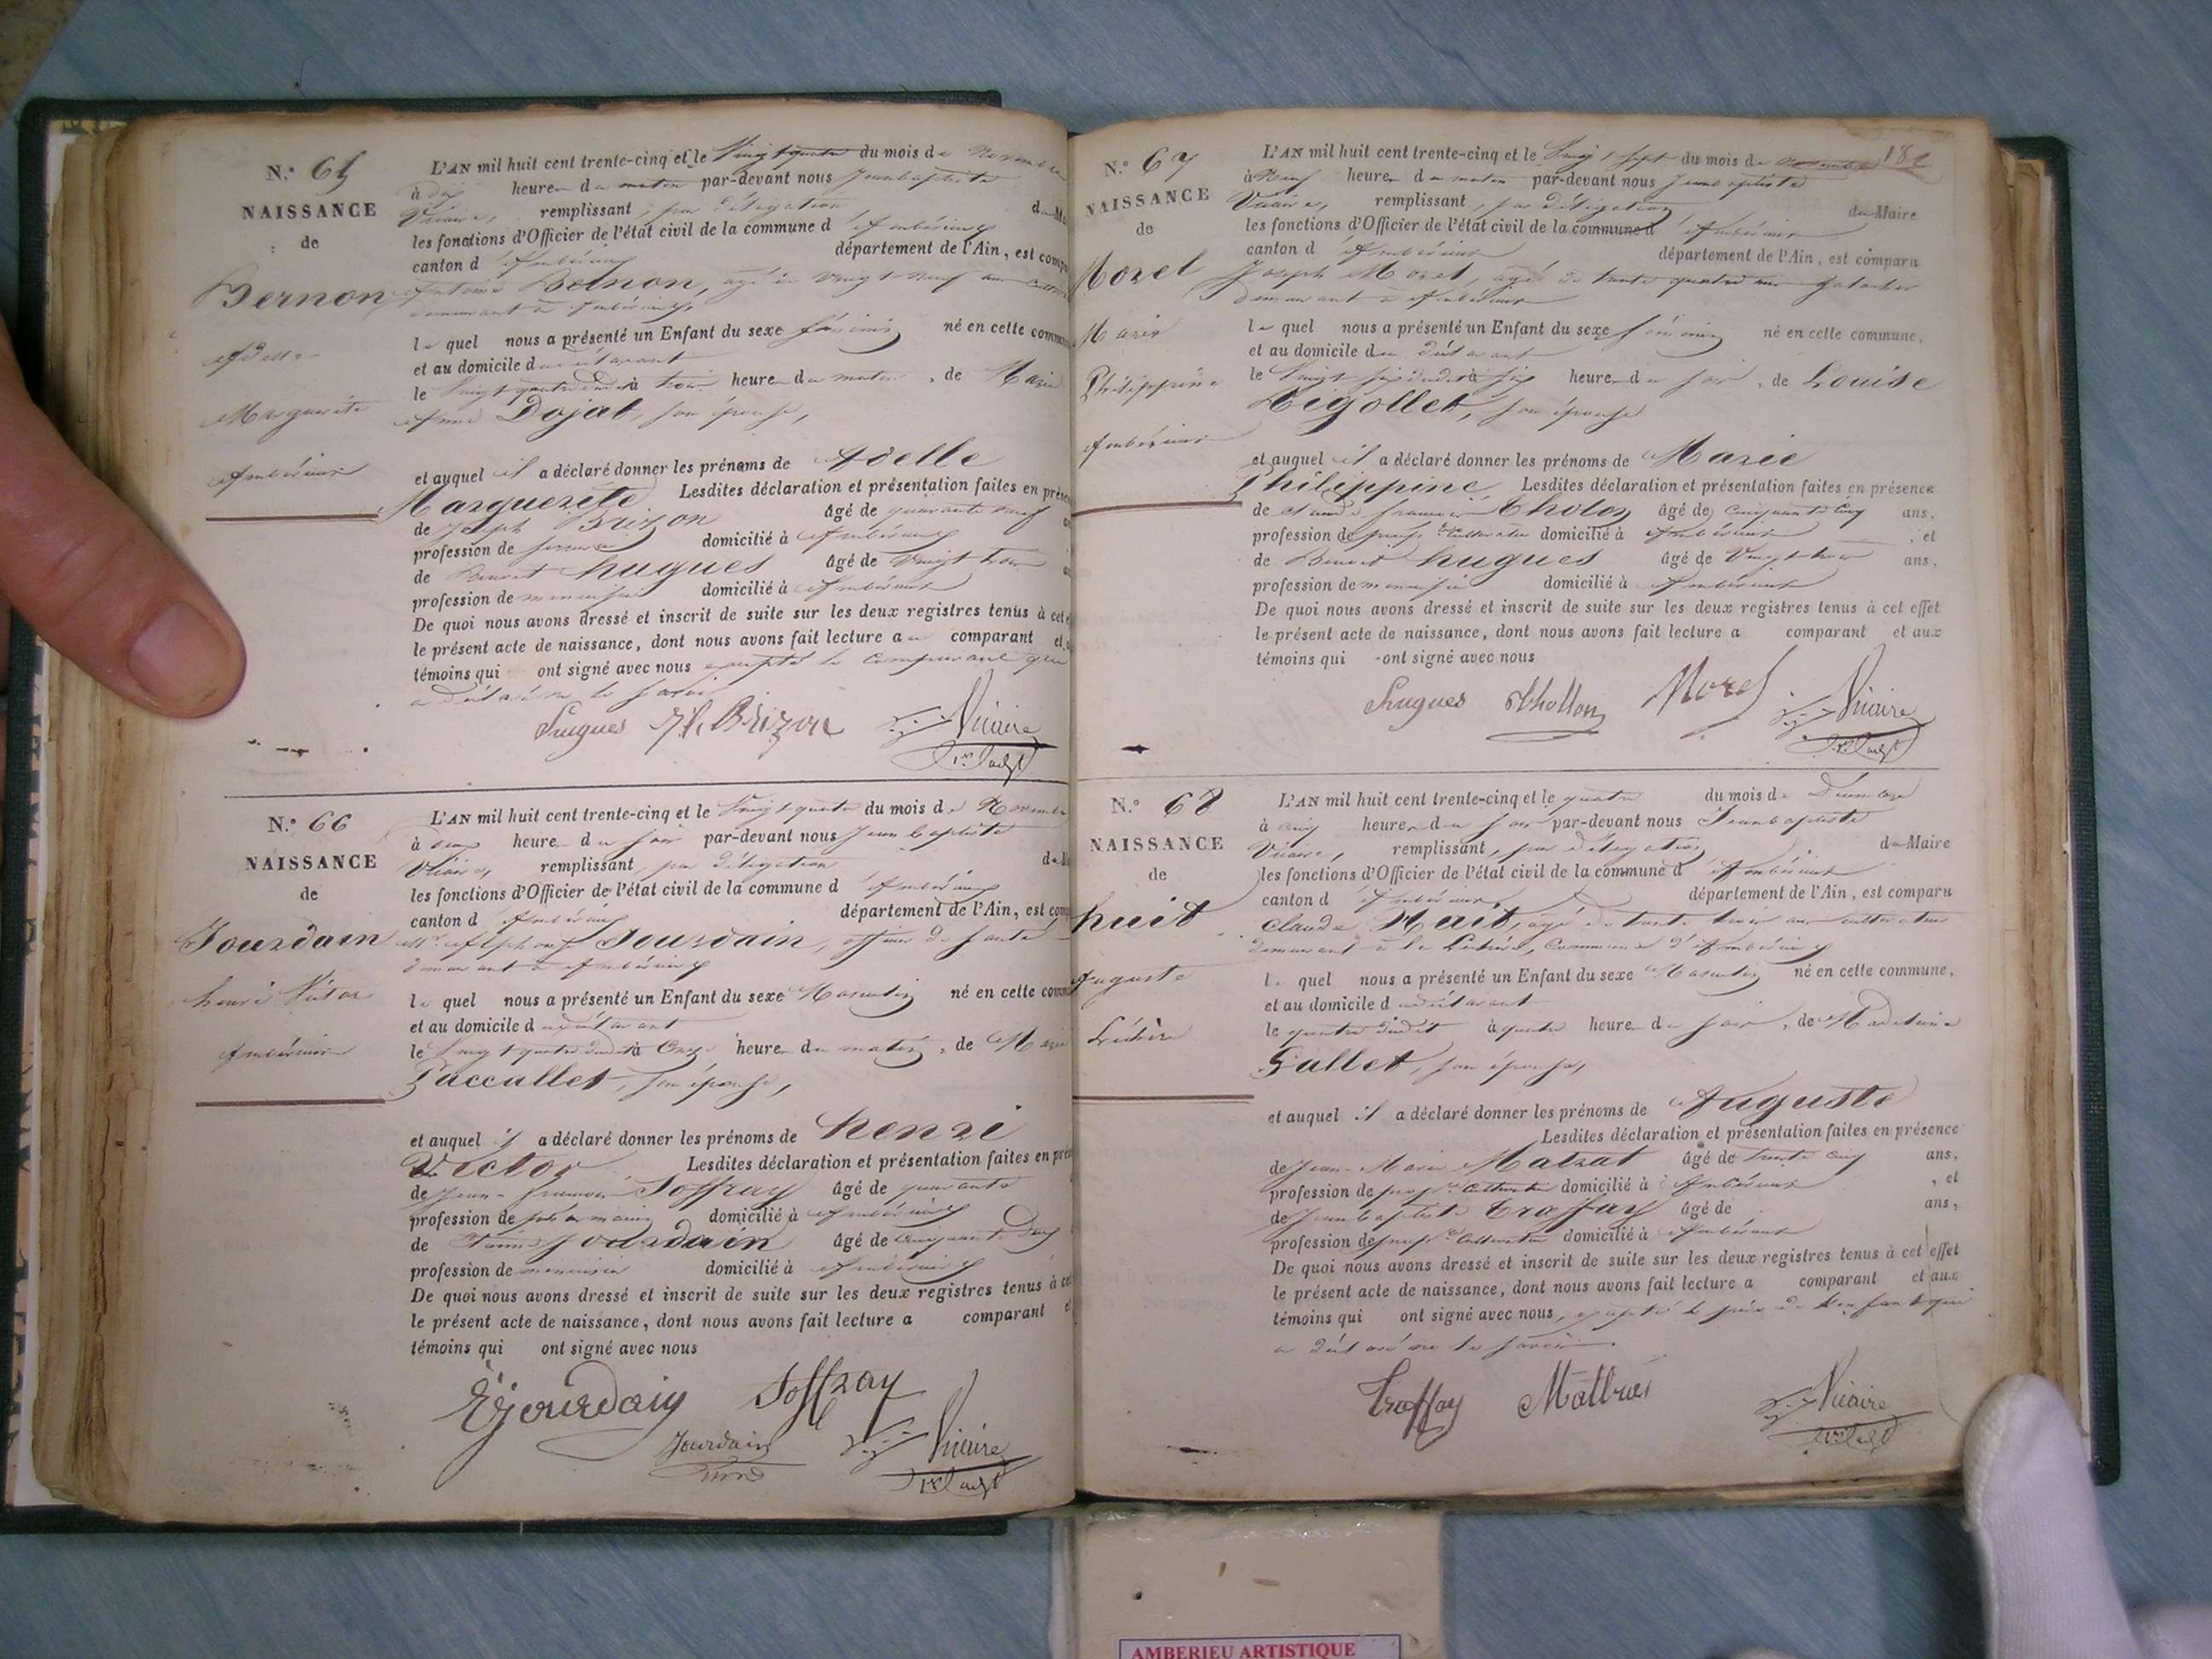 N.° 65
NAISSANCE
de
Bernon
Adelle
Marguerite
Ambérieux
L'AN mil huit cent trente-cinq et le Vingt quatre du mois de Novembre
à dix heures du matin par-devant nous Jean baptiste
Vicaire, remplissant, par délégation du
les fonctions d'Officier de l'état civil de la commune d'Ambérieux
canton d'Ambérieux département de l'Ain, est comparu
Antoine Bernon, agé de vingt neuf ans
demeurant à Ambérieux,
le quel nous a présenté un Enfant du sexe féminin né en cette commune
et au domicile du déclarant
le Vingt quatre dudit à trois heures du matin, de Marie
Anne Dojat, son épouse,
et auquel il a déclaré donner les prénoms de Adelle
Marguerite Lesdites déclaration et présentation faites en présence
de Joseph Brizon âgé de quarante neuf
profession de domicilié à Ambérieux
de Benoit hugues âgé de Vingt trois
profession de menuisier domicilié à Ambérieux
De quoi nous avons dressé et inscrit de suite sur les deux registres tenus à cet
le présent acte de naissance, dont nous avons fait lecture au comparant et
témoins qui ont signé avec nous excepté le comparant qui
a déclaré ne le savoir
Hugues Brizon Vicaire
N.° 66
NAISSANCE
de
Jourdain
henri Victor
Ambérieux
L'AN mil huit cent trente-cinq et le Vingt quatre du mois de Novembre
à deux heures du soir par-devant nous Jean baptiste
Vicaire, remplissant, par délégation du
les fonctions d'Officier de l'état civil de la commune d'Ambérieux
canton d'Ambérieux département de l'Ain, est comparu
Mr. Alphonse Jourdain, officier de santé
demeurant à Ambérieux
le quel nous a présenté un Enfant du sexe Masculin né en cette commune
et au domicile du déclarant
le Vingt quatre dudit à Onze heures du matin, de Marie
Paccallet, son épouse,
et auquel il a déclaré donner les prénoms de henri
Victor Lesdites déclaration et présentation faites en présence
de Jean-françois Joffray âgé de quarante
profession de domicilié à Ambérieux
de Jourdain âgé de Cinquante deux
profession de menuisier domicilié à Ambérieux
De quoi nous avons dressé et inscrit de suite sur les deux registres tenus à cet
le présent acte de naissance, dont nous avons fait lecture a comparant et
témoins qui ont signé avec nous
Jourdain Joffray
Jourdain Vicaire
182
N.° 67
NAISSANCE
de
Morel
Marie
Philippine
Ambérieux
L'AN mil huit cent trente-cinq et le Vingt sept du mois de novembre
à Neuf heures du matin par-devant nous Jean baptiste
Vicaire, remplissant, par délégation du Maire
les fonctions d'Officier de l'état civil de la commune d'Ambérieux
canton d'Ambérieux département de l'Ain, est comparu
Joseph Morel, agé de trente quatre ans
demeurant à Ambérieux
le quel nous a présenté un Enfant du sexe féminin né en cette commune,
et au domicile du déclarant
le Vingt six dudit à six heures du soir, de Louise
Rigollet, son épouse
et auquel il a déclaré donner les prénoms de Marie
Philippine Lesdites déclaration et présentation faites en présence
de Claude françois Tholon âgé de Cinquante cinq ans,
profession de prop.re Cultivateur domicilié à Ambérieux, et
de Benoit hugues âgé de Vingt trois ans,
profession de menuisier domicilié à Ambérieux
De quoi nous avons dressé et inscrit de suite sur les deux registres tenus à cet effet
le présent acte de naissance, dont nous avons fait lecture a comparant et aux
témoins qui ont signé avec nous
Hugues Thollon Morel Vicaire
N.° 68
NAISSANCE
de
huit
Auguste
L'AN mil huit cent trente-cinq et le quatre du mois de Décembre
à cinq heures du soir par-devant nous Jean baptiste
Vicaire, remplissant, par délégation du Maire
les fonctions d'Officier de l'état civil de la commune d'Ambérieux
canton d'Ambérieux, département de l'Ain, est comparu
Claude Huit, agé de trente trois ans cultivateur
demeurant à la commune d'Ambérieux
le quel nous a présenté un Enfant du sexe Masculin né en cette commune,
et au domicile du déclarant
le quatre dudit à quatre heures du soir, de Madelaine
Gallet, son épouse,
et auquel il a déclaré donner les prénoms de Auguste
Lesdites déclaration et présentation faites en présence
de Jean-Marie Matrat âgé de trente cinq ans,
profession de prop.re Cultivateur domicilié à Ambérieux, et
de Jean baptiste Troffay âgé de ans,
profession de prop.re Cultivateur domicilié à Ambérieux
De quoi nous avons dressé et inscrit de suite sur les deux registres tenus à cet effet
le présent acte de naissance, dont nous avons fait lecture a comparant et aux
témoins qui ont signé avec nous, excepté le père de l'enfant qui
a déclaré ne le savoir
Troffay Vicaire
AMBERIEU ARTISTIQUE